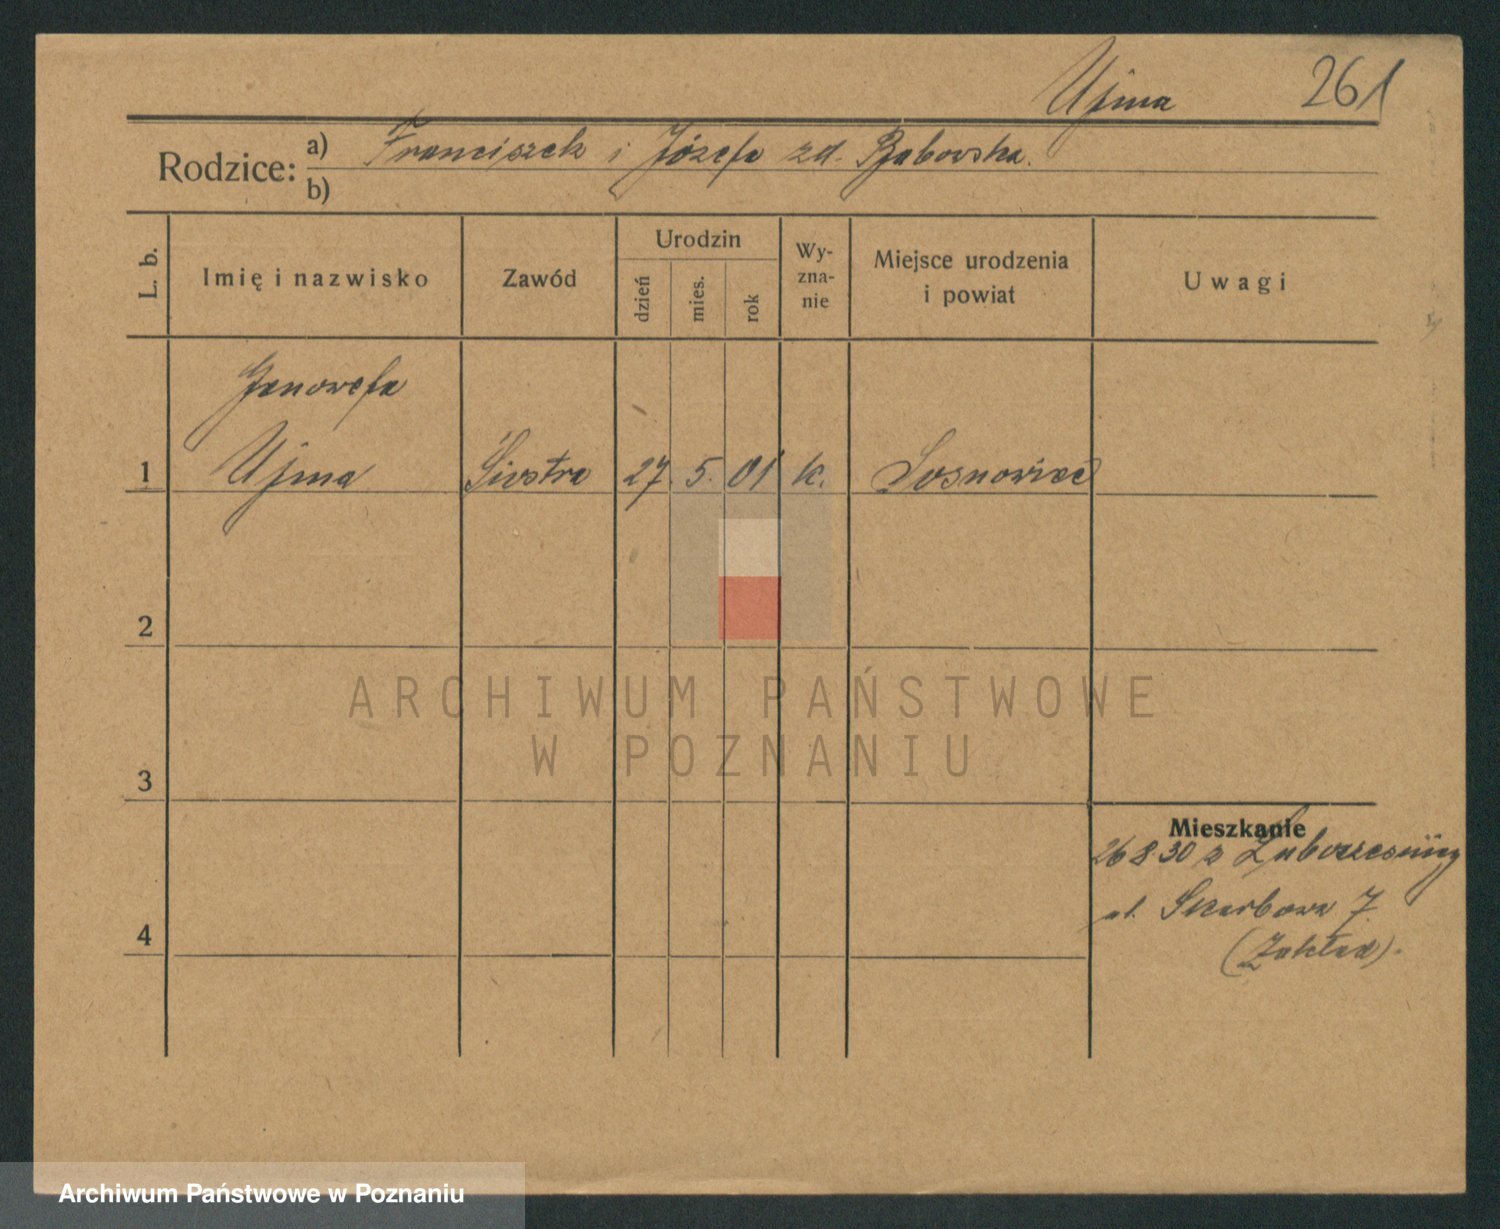 Ujma 261
Rodzice: a) Franciszek i Józefa zd. Bąbowska.
b)
L. b.
Imię i nazwisko
Zawód
Urodzin
dzień
mies.
rok
Wy-
zna-
nie
Miejsce urodzenia
i powiat
Uwagi
Genowefa
1 Ujma Siostra 27. 5. 01 k. Sosnowiec
2
ARCHIWUM PAŃSTWOWE
W POZNANIU
3
Mieszkanie
26 8 30 z
4 ul. Skarbowa 7
(Zakład).
Archiwum Państwowe w Poznaniu